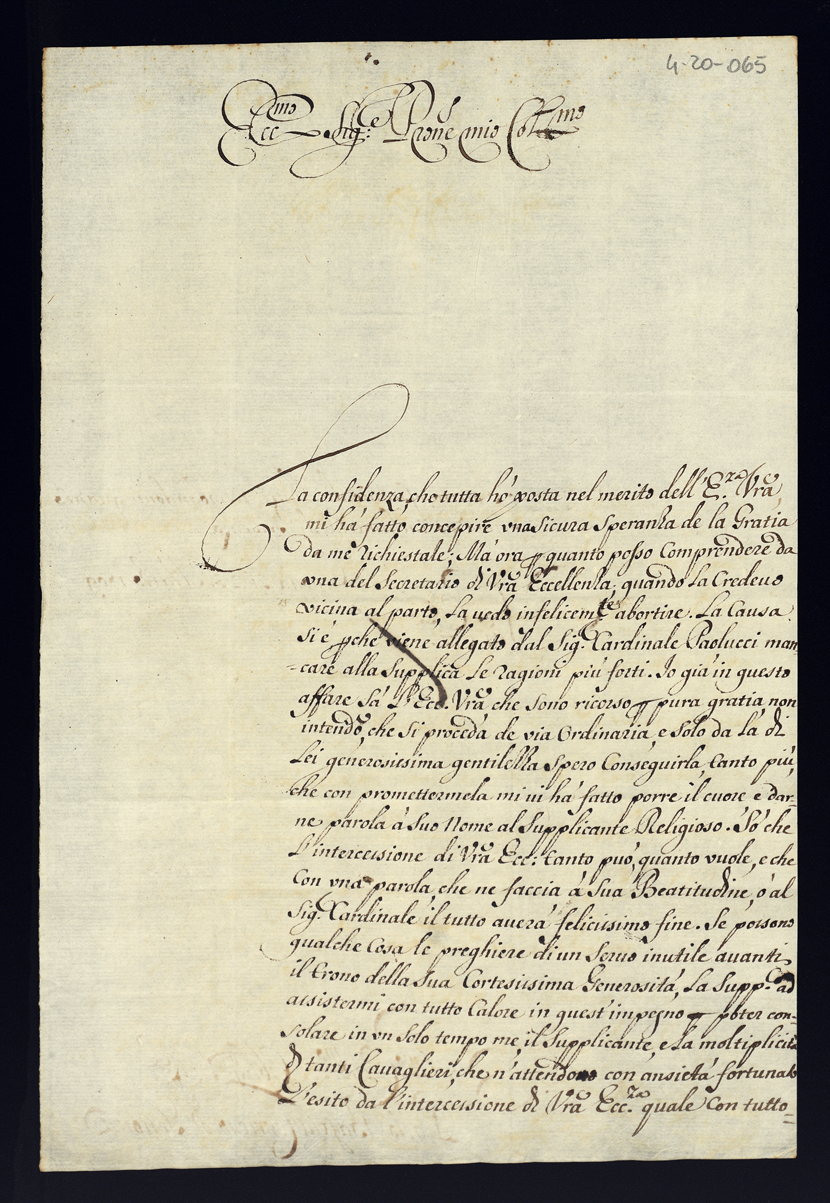 4-20-065
Ecc.mo Sig.re Prone mio Col.mo
La confidenza, che tutta hó posta nel merito dell' E.za Vrã
mi há fatto concepire vna sicura speranza de la Gratia
da me richiestale; Má ora p quanto posso comprendere da
vna del Secretario di Vrã Eccellenza, quando la credeuo
vicina al parto, la uedo infelicem.te abortire. La causa
si é pche viene allegato dal Sig. Cardinale Paolucci man
=care alla supplica le ragioni piú forti. Io giá in questo
affare sá l'Ecc. Vrã che sono ricorso p pura gratia, non
intendo, che si proceda de via ordinaria, e solo da la di
Lei generosissima gentilezza spero conseguirla, tanto piú,
che con promettermela mi ui há fatto porre il cuore e dar=
ne parola á suo nome al supplicante Religioso. Só che
l'intercessione di Vrã Ecc: tanto puó, quanto vuole, e che
con vna parola, che ne faccia á Suá Beatitudine, ó al
Sig. Cardinale il tutto auerá felicissimo fine. Se possono
qualche cosa le preghiere di un seruo inutile auanti
il trono della sua cortesissima generositá, la supp.co ad
assistermi con tutto calore in quest' impegno p poter con=
solare in vn solo tempo me, il supplicante, e la moltiplicitá
di tanti Cauaglieri, che n'attendono con ansietá fortunato
l'esito da l'intercessione di Vrã Ecc.za quale con tutto=